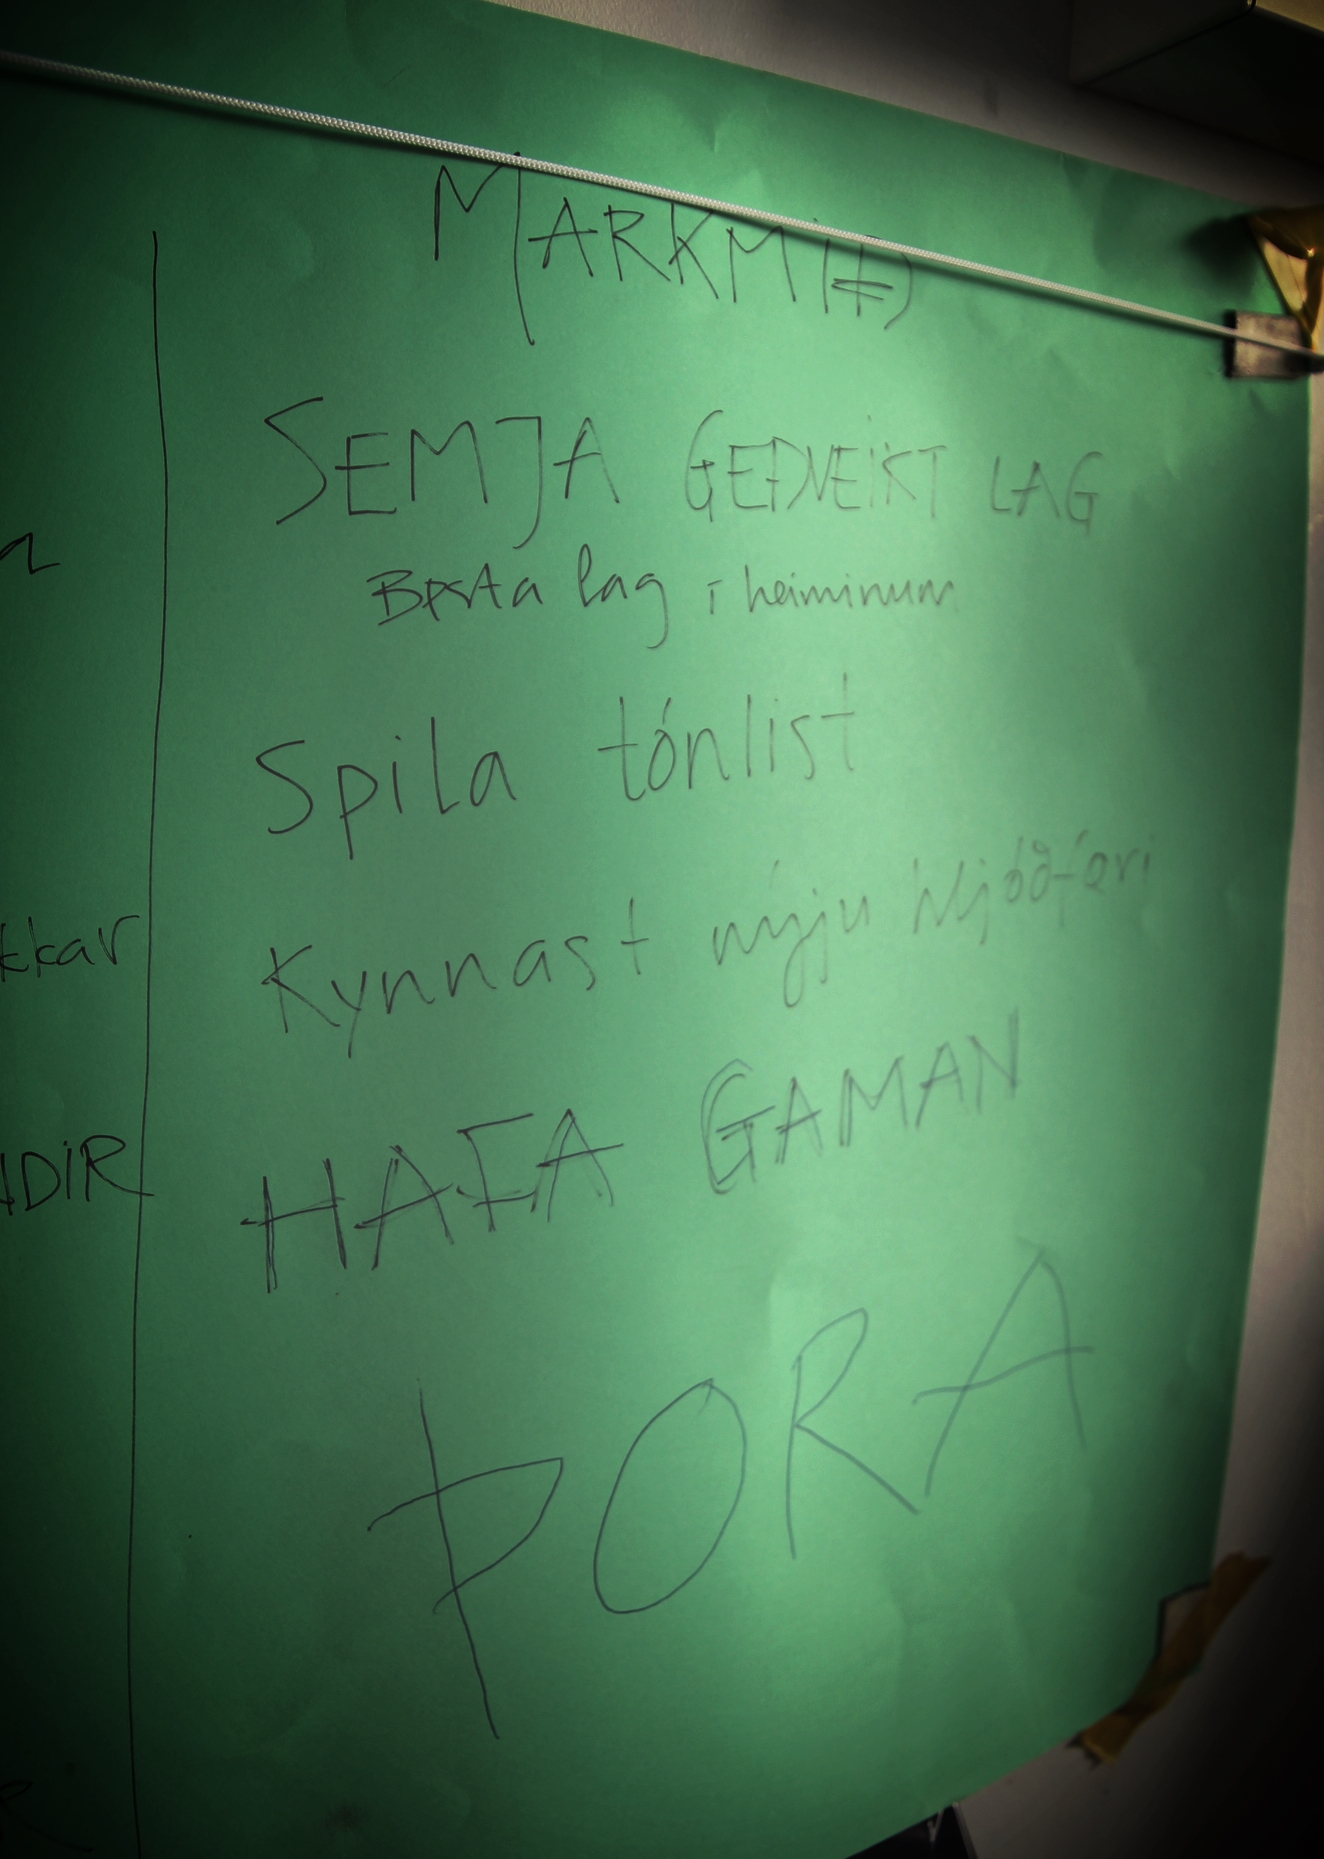 MARKMIÐ
SEMJA GEÐVEIKT LAG
Besta lag í heiminum
Spila tónlist
Kynnast nýju hljóðfæri
kkar
HAFA GAMAN
NDIR
ÞORA